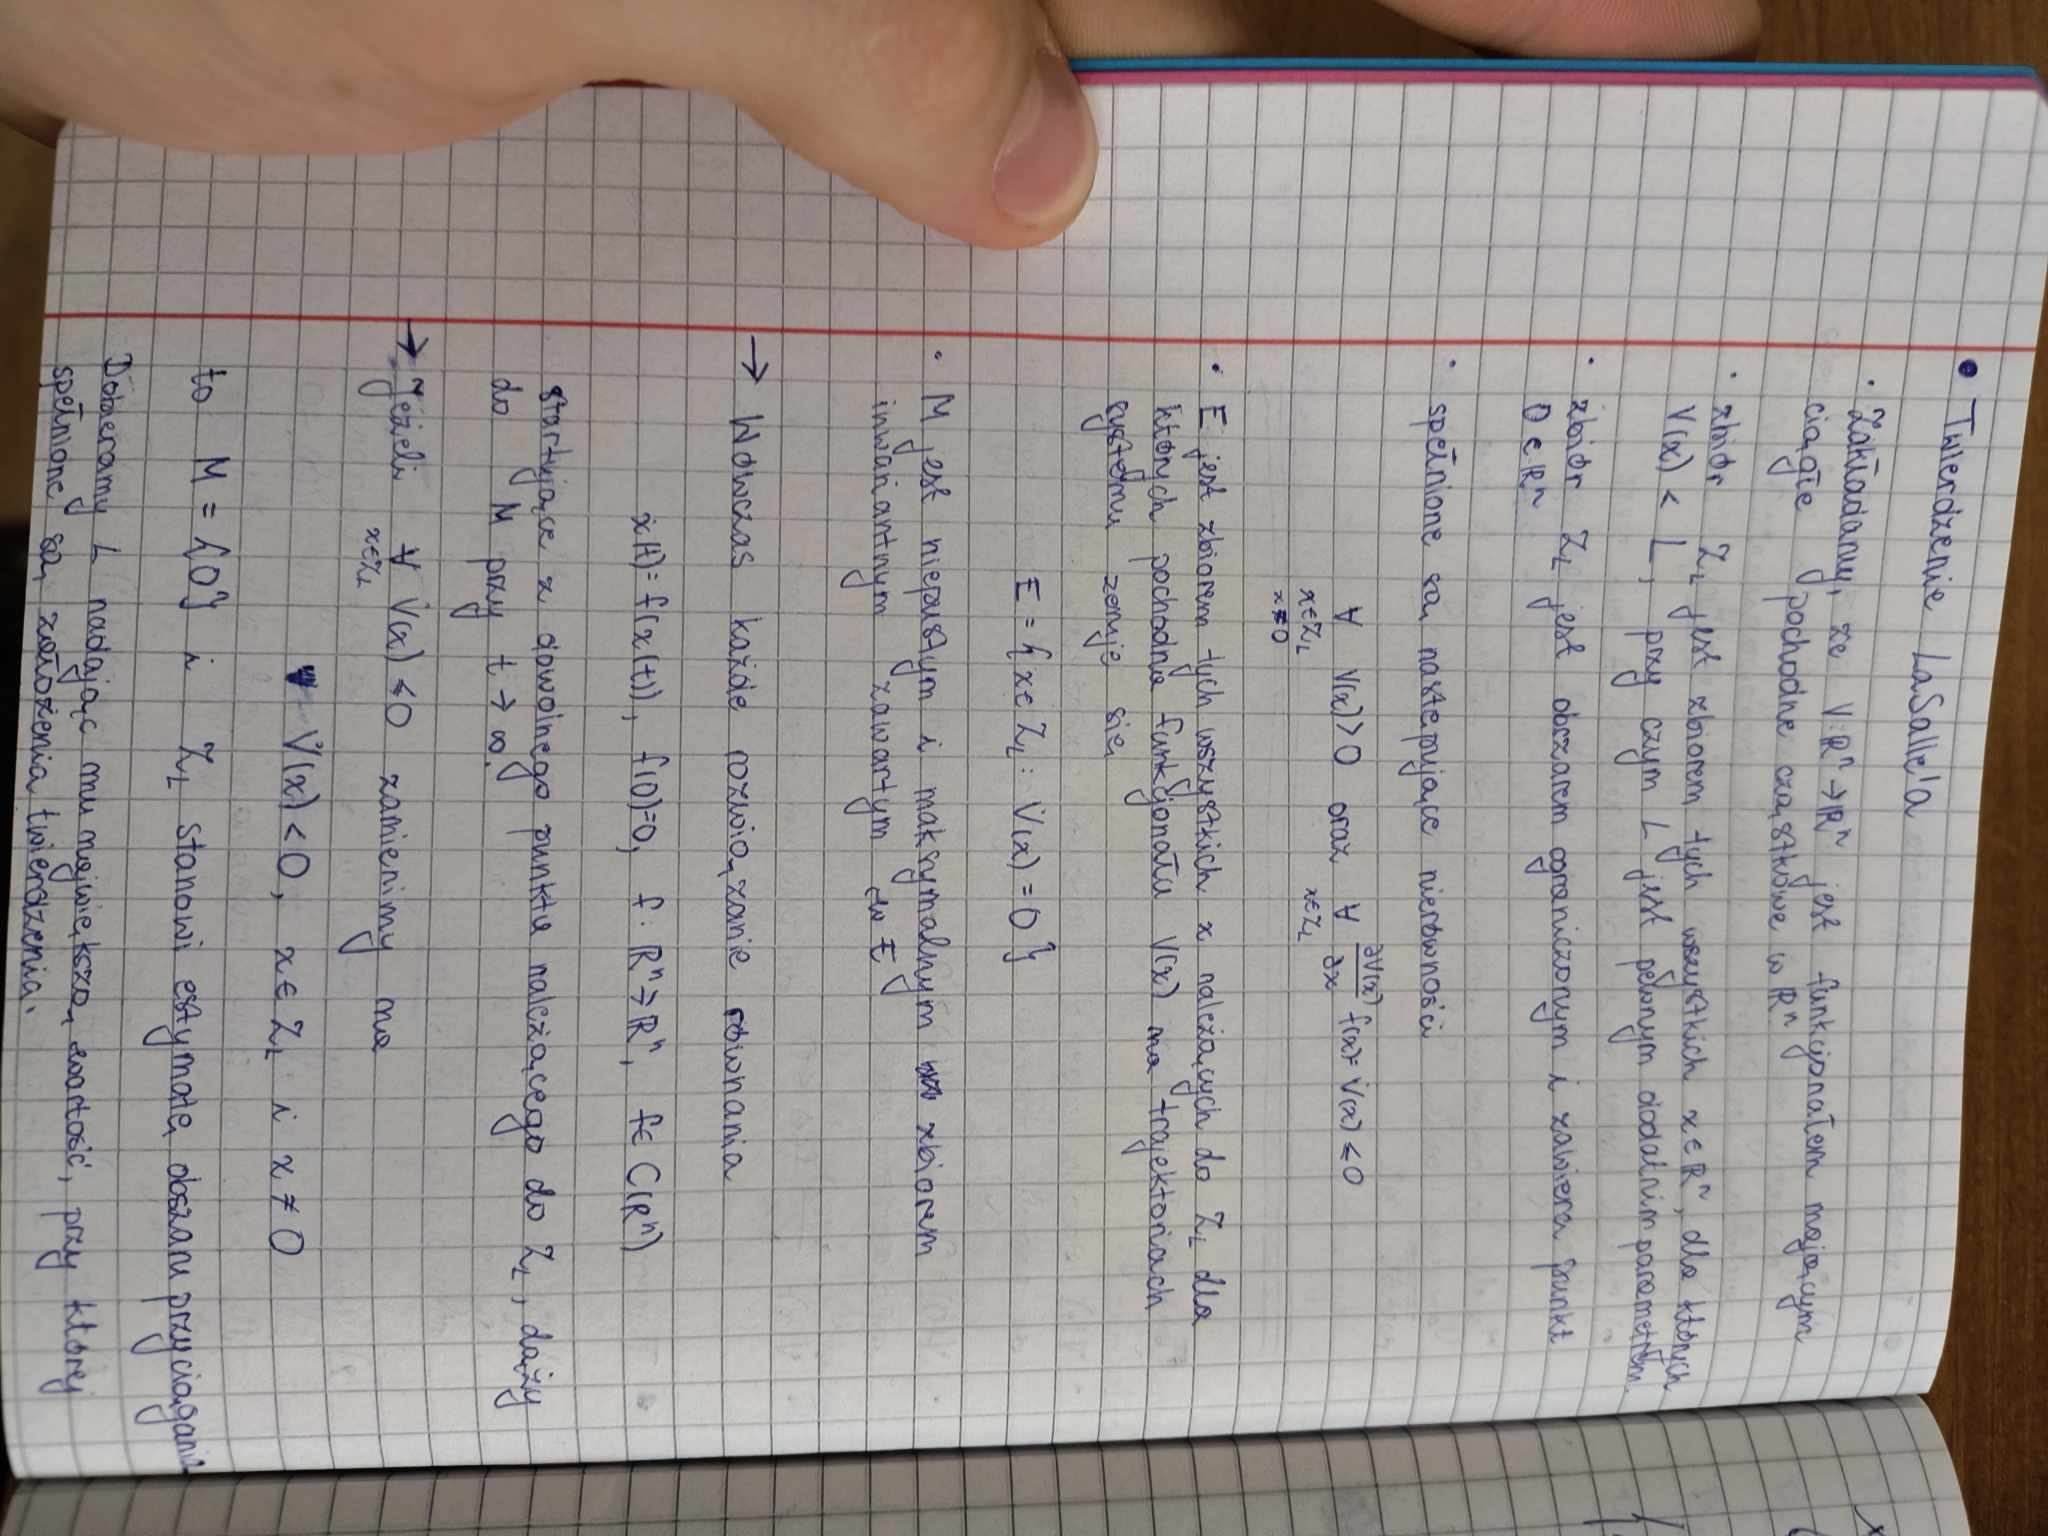 • Twierdzenie LaSalle'a
• Zakładamy, że V: Rⁿ → Rⁿ jest funkcjonałem mającym
ciągłe pochodne cząstkowe w Rⁿ
• zbiór Z_L jest zbiorem tych wszystkich x ∈ Rⁿ, dla których
V(x) < L, przy czym L jest pewnym dodatnim parametrem.
• zbiór Z_L jest obszarem ograniczonym i zawiera punkt
0 ∈ Rⁿ
• spełnione są następujące nierówności
∀ V(x) > 0 oraz ∀ ∂V(x)/∂x f(x) = V̇(x) ≤ 0
x∈Z_L x∈Z_L
x≠0
• E jest zbiorem tych wszystkich x należących do Z_L dla
których pochodna funkcjonału V(x) na trajektoriach
systemu zeruje się
E = {x ∈ Z_L : V̇(x) = 0}
• M jest niepustym i maksymalnym zbiorem
inwariantnym zawartym w E
→ Wówczas każde rozwiązanie równania
ẋ(t) = f(x(t)), f(0)=0, f: Rⁿ → Rⁿ, f ∈ C(Rⁿ)
startujące z dowolnego punktu należącego do Z_L, dąży
do M przy t → ∞.
→ Jeżeli ∀ V̇(x) ≤ 0 zamienimy na
x∈Z_L
V̇(x) < 0, x ∈ Z_L i x ≠ 0
to M = {0} i Z_L stanowi estymatę obszaru przyciągania
Dobieramy L nadając mu największą wartość, przy której
spełnione są założenia twierdzenia.